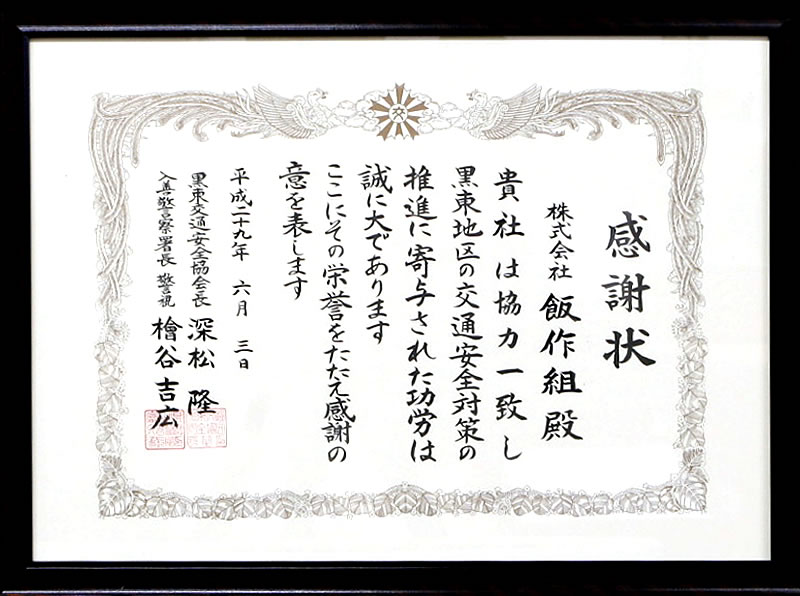 感謝状
株式会社 飯作組 殿
貴社は協力一致し
黒東地区の交通安全対策の
推進に寄与された功労は
誠に大であります
ここにその栄誉をたたえ感謝の
意を表します
平成二十九年 六月 三日
黒東交通安全協会長 深松 隆
入善警察署長 警視 檜谷 吉広